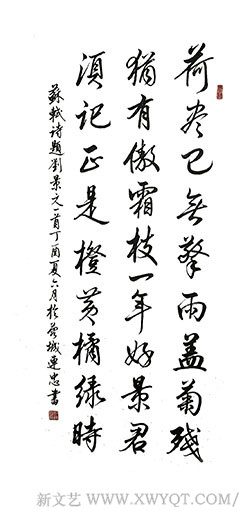 荷尽已无擎雨盖菊残
犹有傲霜枝一年好景君
須記正是橙黄橘绿時
蘇軾诗題劉景文一首丁酉夏六月於蓉城连忠書
新文艺／WWW.XWYQT.COM／